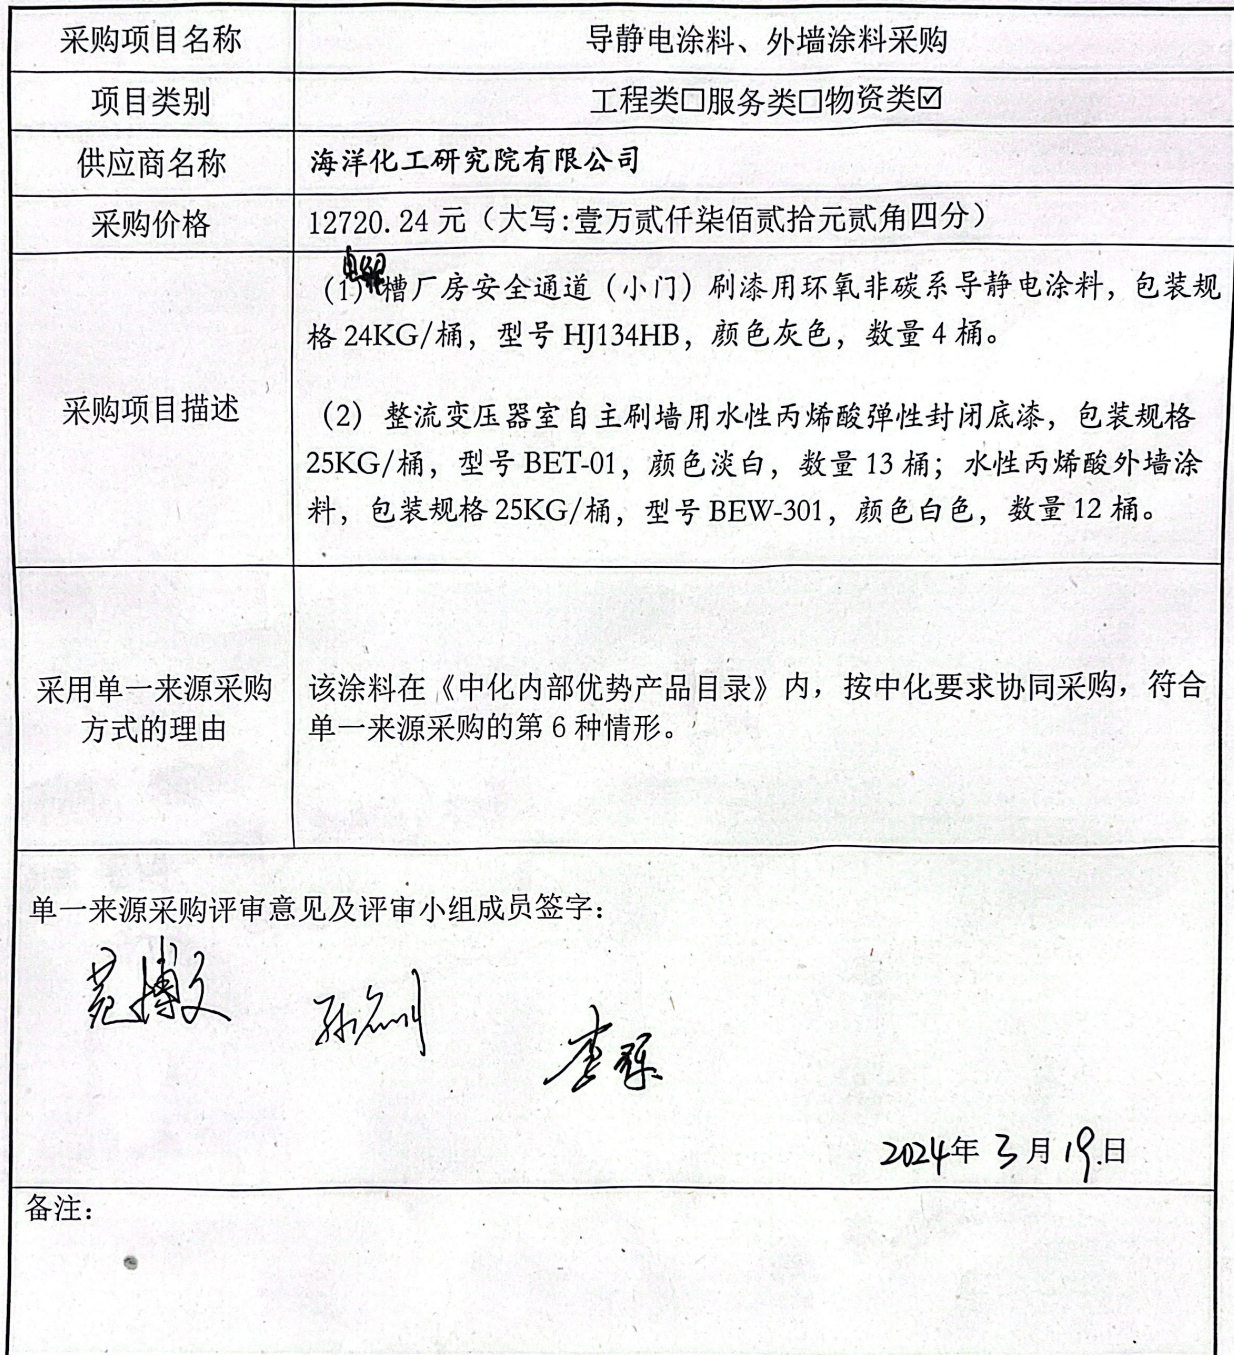 采购项目名称
导静电涂料、外墙涂料采购
项目类别
工程类□服务类□物资类☑
供应商名称
海洋化工研究院有限公司
采购价格
12720.24 元（大写:壹万贰仟柒佰贰拾元贰角四分）
采购项目描述
（1）槽厂房安全通道（小门）刷漆用环氧非碳系导静电涂料，包装规
格 24KG/桶，型号 HJ134HB，颜色灰色，数量 4 桶。
（2）整流变压器室自主刷墙用水性丙烯酸弹性封闭底漆，包装规格
25KG/桶，型号 BET-01，颜色淡白，数量 13 桶；水性丙烯酸外墙涂
料，包装规格 25KG/桶，型号 BEW-301，颜色白色，数量 12 桶。
采用单一来源采购
方式的理由
该涂料在《中化内部优势产品目录》内，按中化要求协同采购，符合
单一来源采购的第 6 种情形。
单一来源采购评审意见及评审小组成员签字：
苑搏文
2024年 3 月 19.日
备注：